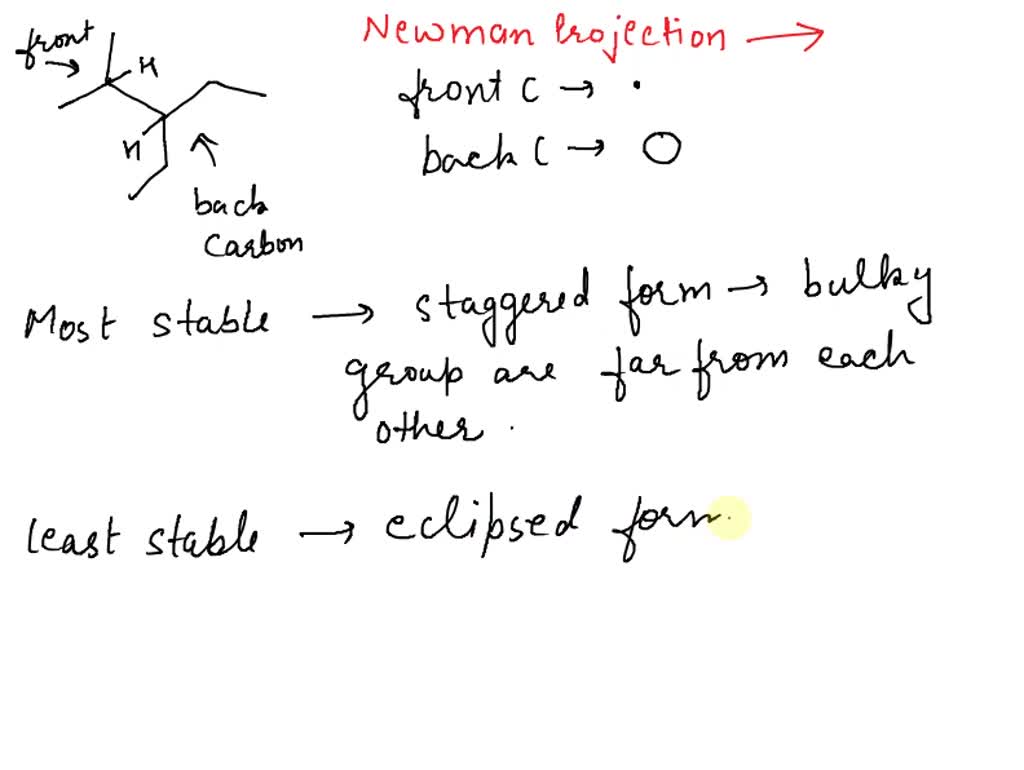 front →
H
H
back
carbon
Newman Projection →
front C → •
back C → ○
Most stable → staggered form → bulky
group are far from each
other.
least stable → eclipsed form